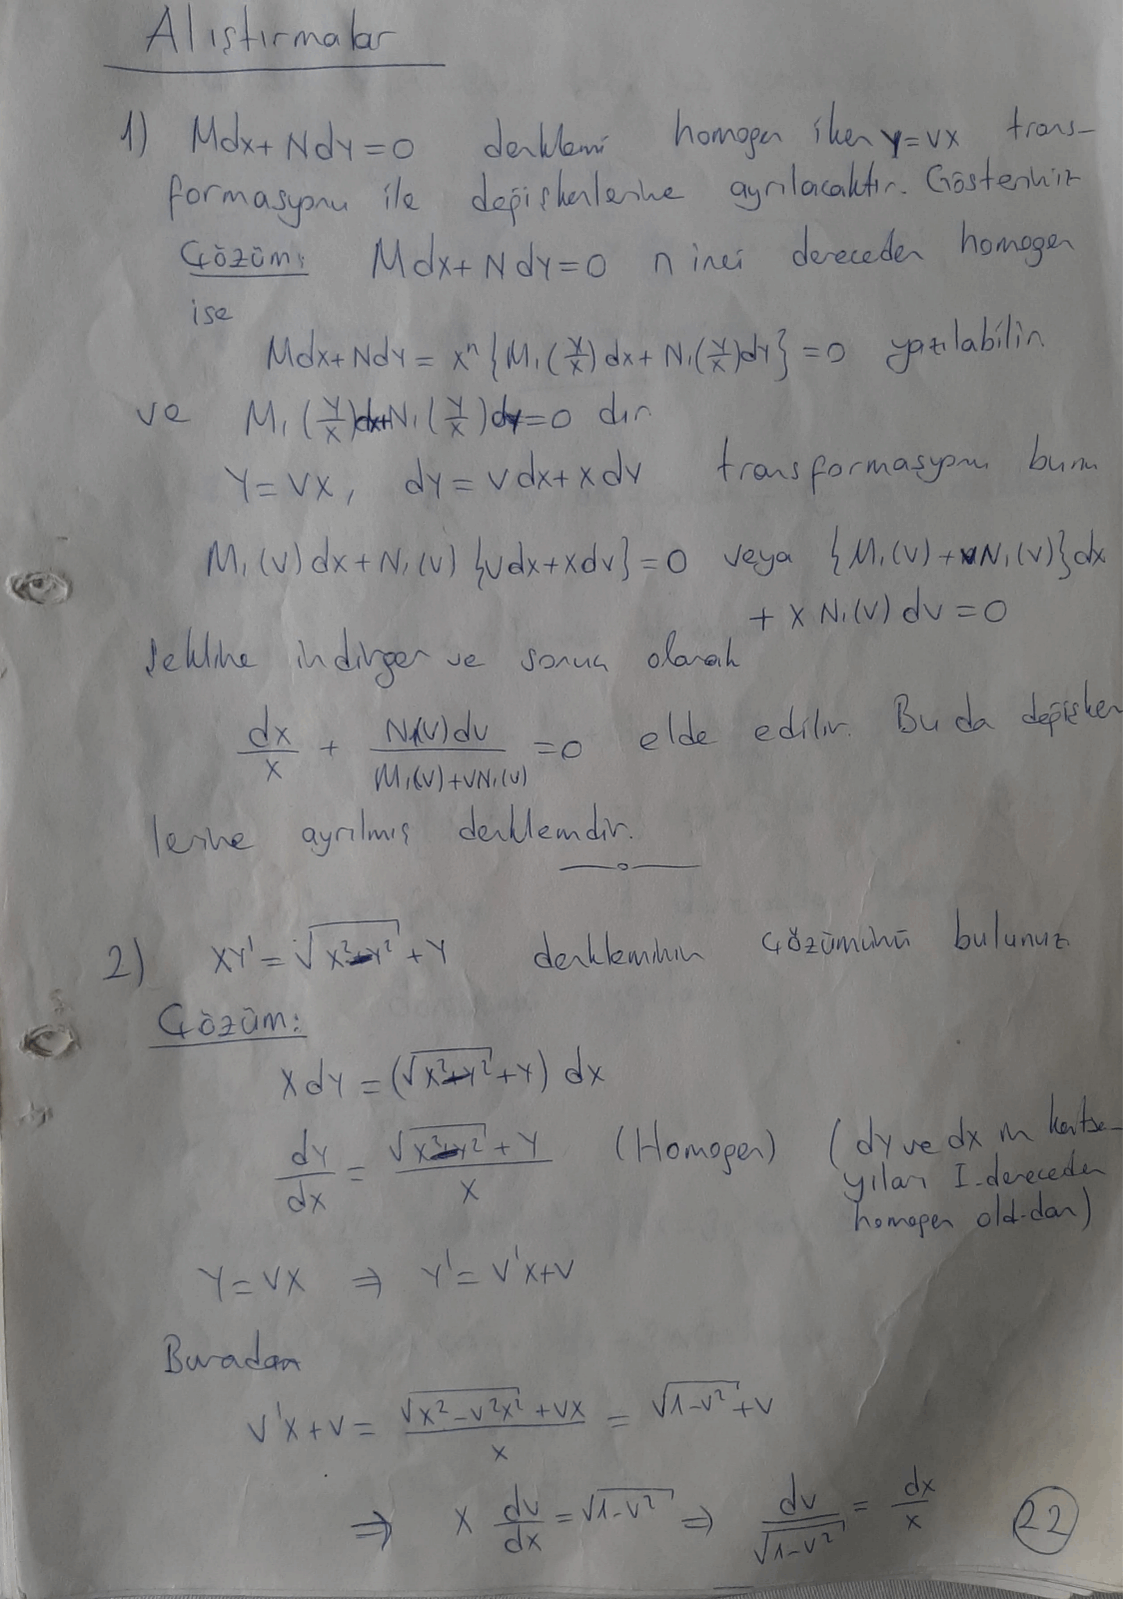 Alıştırmalar
1) Mdx+Ndy=0 denklemi homogen iken y=vx trans-
formasyonu ile değişkenlerine ayrılacaktır. Gösteriniz
Çözüm: Mdx+Ndy=0 n inci dereceden homogen
ise
Mdx+Ndy = xⁿ{M₁(y/x)dx+N₁(y/x)dy}=0 yazılabilir
ve M₁(y/x)dx+N₁(y/x)dy=0 dır
y=vx, dy=vdx+xdv transformasyonu bunu
M₁(v)dx+N₁(v){vdx+xdv}=0 veya {M₁(v)+vN₁(v)}dx
+xN₁(v)dv=0
şekline indirger ve sonuç olarak
dx/x + N₁(v)dv/(M₁(v)+vN₁(v)) =0 elde edilir. Bu da değişken
lerine ayrılmış denklemdir.
2) xy'=√(x²-y²)+y denkleminin çözümünü bulunuz
Çözüm:
xdy=(√(x²-y²)+y)dx
dy/dx = (√(x²-y²)+y)/x (Homogen) (dy ve dx in katsa-
yıları I. dereceden
homogen old.dan)
y=vx ⇒ y'=v'x+v
Buradan
v'x+v = (√(x²-v²x²)+vx)/x = √(1-v²)+v
⇒ x dv/dx = √(1-v²) ⇒ dv/√(1-v²) = dx/x
22